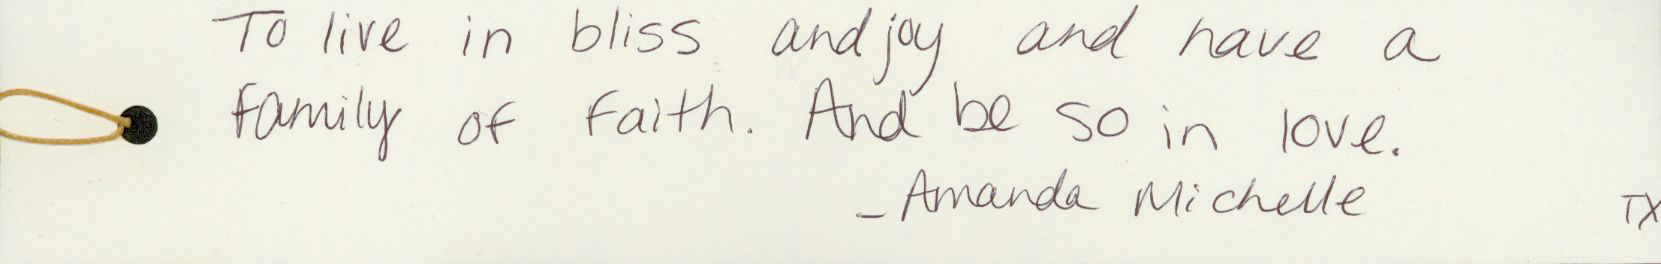 To live in bliss and joy and have a
family of faith. And be so in love.
- Amanda Michelle
TX